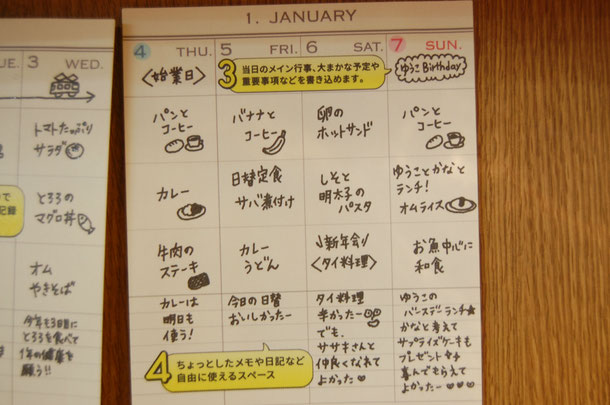 1. JANUARY
UE. 3 WED.
4 THU. 5 FRI. 6 SAT. 7 SUN.
〈始業日〉
3 当日のメイン行事、大まかな予定や
重要事項などを書き込めます。
ゆうこBirthday
トマトたっぷり
サラダ
パンと
コーヒー
バナナと
コーヒー
卵の
ホットサンド
パンと
コーヒー
とろろの
マグロ丼
カレー
日替定食
サバ煮付け
しそと
明太子の
パスタ
ゆうことかなと
ランチ!
オムライス
で
記録
オム
やきそば
牛肉の
ステーキ
カレー
うどん
新年会
〈タイ料理〉
お魚中心に
和食
今年も3日目に
とろろを食べて
1年の健康を
願う!!
カレーは
明日も
使う!
今日の日替
おいしかったー
タイ料理
辛かったー
でも、
ササキさんと
仲良くなれて
よかった
ゆうこの
バースデーランチ
かなと考えて
サプライズケーキも
プレゼント
喜んでもらえて
よかったー
4 ちょっとしたメモや日記など
自由に使えるスペース